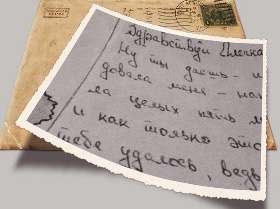 Здравствуй Елечка
Ну ты даешь - и
довала меня - на
ла целых пять
и как только это
тебе удалось, ведь